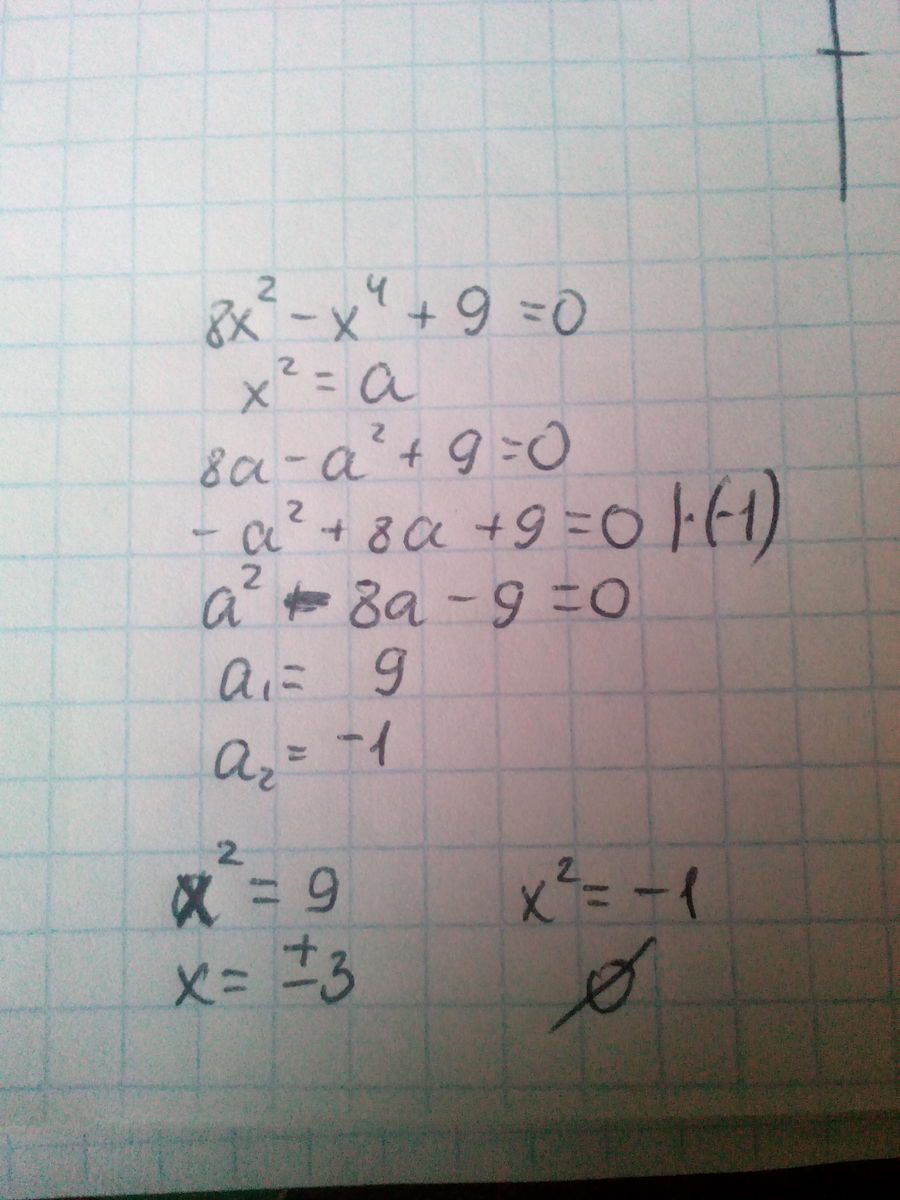 8x² - x⁴ + 9 = 0
x² = a
8a - a² + 9 = 0
- a² + 8a + 9 = 0 |·(-1)
a² - 8a - 9 = 0
a₁ = 9
a₂ = -1
x² = 9 x² = -1
x = ±3 ∅